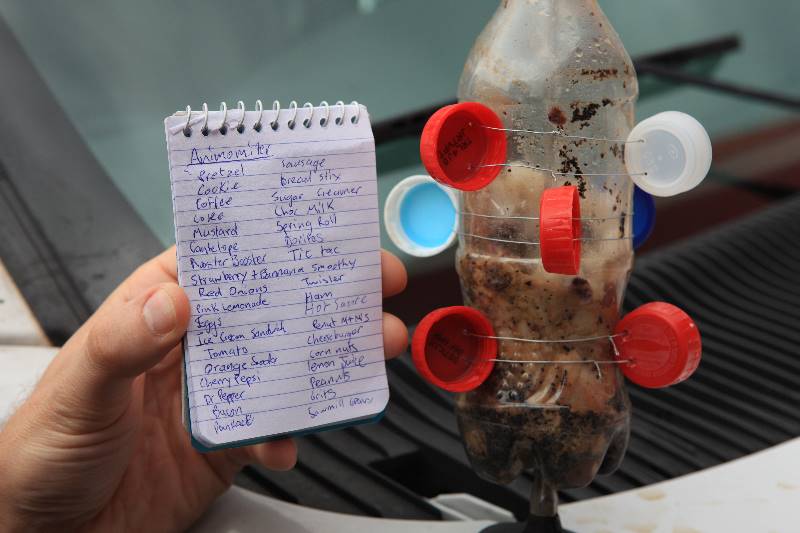 Animomiter
Pretzel
Cookie
Coffee
Coke
Mustard
Cantelope
Rooster Booster
Strawberry + Bannana Smoothy
Red Onions
Pink Lemonade
Eggs
Ice Cream Sandwich
Tomato
Orange Soda
Cherry Pepsi
Dr Pepper
Bacon
Pancake
Sausage
bread stix
Sugar Creamer
Choc Milk
Spring Roll
Doritos
Tic tac
Twister
Ham
Hot Sauce
Penut M+M's
Cheesburger
Corn nuts
lemon Juice
Peanuts
Grits
Sawmill Gravy